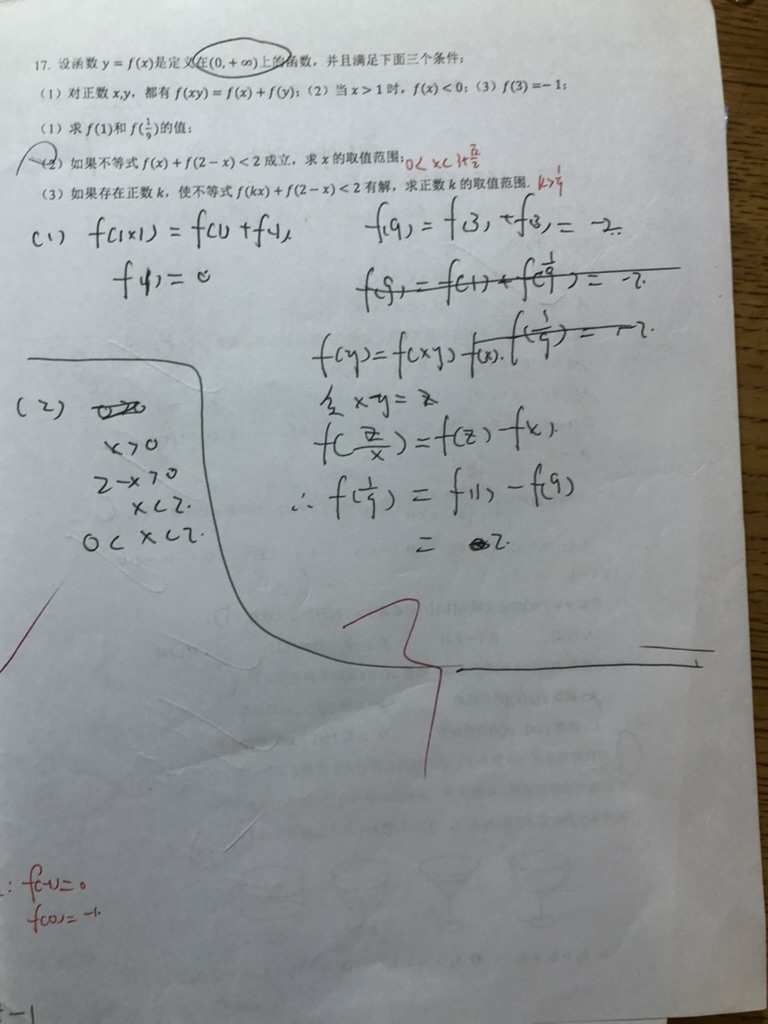 17. 设函数 y = f(x)是定义在(0, +∞)上的函数，并且满足下面三个条件：
（1）对正数 x,y，都有 f(xy) = f(x) + f(y)；（2）当 x > 1 时，f(x) < 0；（3）f(3) = − 1；
（1）求 f(1)和 f(1/9)的值；
（2）如果不等式 f(x) + f(2 − x) < 2 成立，求 x 的取值范围；
（3）如果存在正数 k，使不等式 f(kx) + f(2 − x) < 2 有解，求正数 k 的取值范围. k>1/9
(1) f(1×1) = f(1) + f(1)
f(1) = 0
f(9) = f(3) + f(3) = -2.
f(9) = f(1) + f(1/9) = -2.
f(y) = f(xy) - f(x). f(1/9) = -2.
令 xy = z
f(z/x) = f(z) - f(x).
∴ f(1/9) = f(1) - f(9)
= 2.
(2)
x>0
2-x>0
x<2.
0< x<2.
f(-1)=0
f(0)=-1.
-1